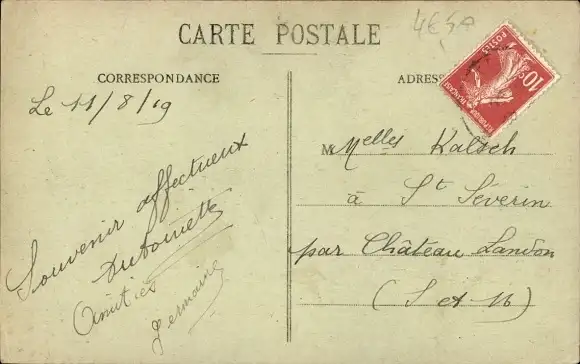 CARTE POSTALE
CORRESPONDANCE
Le 11/8/19
Souvenir affectueux
Antoinette
Amitiés
Germaine
ADRESS
M Melles Kalsch
à St Séverin
par Château Landon
(S et M)
10c
POSTES
REPUBLIQUE FRANÇAISE